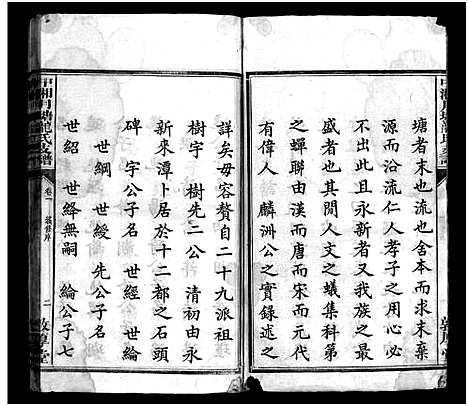 塘者末也流也舍本而求末棄
源而沿流仁人孝子之用心必
不然也永新者又我族之最
盛者也其閒人文之蟻集科第
之蟬聯由漢而唐而宋而元明
有偉人 麟洲公之實錄述之
詳矣毋容贅自二十九派祖
樹宇 樹先二公 清初由永
新來潭卜居於十二都之石頭
碑 宇公子名 世經 世綸
世綱 世綬 先公子名
世紹 世絳無嗣 綸公子七
中湘月塘龍氏支譜
卷一 續修序
二 敦厚堂